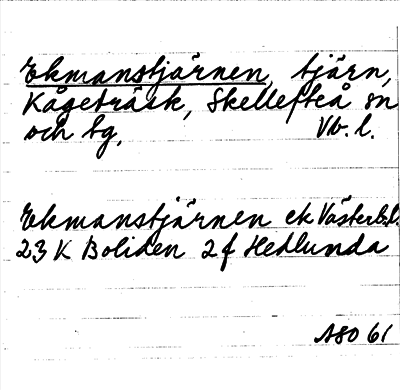 Ekmanstjärnen, tjärn,
Kågeträsk, Skellefteå sn
och tg, Vb. l.
Ekmanstjärnen ek Västerb.l.
23 K Boliden 2 f Hedlunda
ASO 61